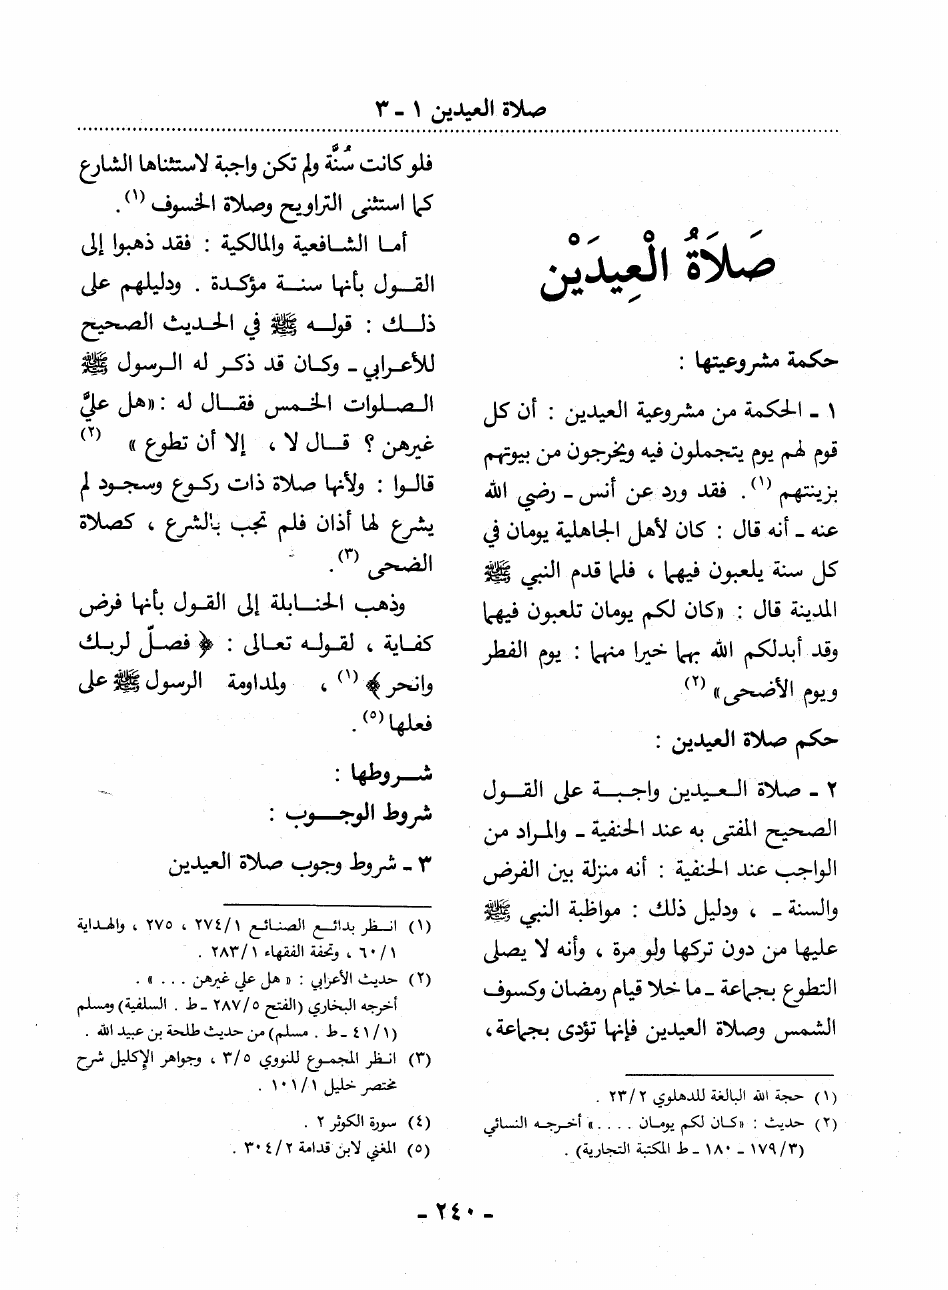 صلاة العيدين ١ - ٣
صَلَاةُ الْعِيدَيْنِ
حكمة مشروعيتها :
١ - الحكمة من مشروعية العيدين : أن كل
قوم لهم يوم يتجملون فيه ويخرجون من بيوتهم
بزينتهم (١). فقد ورد عن أنس - رضي الله
عنه - أنه قال : كان لأهل الجاهلية يومان في
كل سنة يلعبون فيهما ، فلما قدم النبي ﷺ
المدينة قال : «كان لكم يومان تلعبون فيهما
وقد أبدلكم الله بهما خيرا منهما : يوم الفطر
ويوم الأضحى» (٢)
حكم صلاة العيدين :
٢ - صلاة العيدين واجبة على القول
الصحيح المفتى به عند الحنفية - والمراد من
الواجب عند الحنفية : أنه منزلة بين الفرض
والسنة - ، ودليل ذلك : مواظبة النبي ﷺ
عليها من دون تركها ولو مرة ، وأنه لا يصلى
التطوع بجماعة - ما خلا قيام رمضان وكسوف
الشمس وصلاة العيدين فإنها تؤدى بجماعة ،
(١) حجة الله البالغة للدهلوي ٢٣/٢ .
(٢) حديث : «كان لكم يومان . . . .» أخرجه النسائي
(١٧٩/٣ - ١٨٠ - ط المكتبة التجارية) .
فلو كانت سُنَّة ولم تكن واجبة لاستثناها الشارع
كما استثنى التراويح وصلاة الخسوف (١).
أما الشافعية والمالكية : فقد ذهبوا إلى
القول بأنها سنة مؤكدة . ودليلهم على
ذلك : قوله ﷺ في الحديث الصحيح
للأعرابي - وكان قد ذكر له الرسول ﷺ
الصلوات الخمس فقال له : «هل عليَّ
غيرهن ؟ قال لا ، إلا أن تطوع » (٢)
قالوا : ولأنها صلاة ذات ركوع وسجود لم
يشرع لها أذان فلم تجب بالشرع ، كصلاة
الضحى (٣).
وذهب الحنابلة إلى القول بأنها فرض
كفاية ، لقوله تعالى : ﴿ فصلّ لربك
وانحر ﴾ (١) ، ولمداومة الرسول ﷺ على
فعلها (٥).
شروطها :
شروط الوجوب :
٣ - شروط وجوب صلاة العيدين
(١) انظر بدائع الصنائع ٢٧٤/١ ، ٢٧٥ ، والهداية
٦٠/١ ، وتحفة الفقهاء ٢٨٣/١ .
(٢) حديث الأعرابي : « هل علي غيرهن . . . » .
أخرجه البخاري (الفتح ٢٨٧/٥ - ط . السلفية) ومسلم
(٤١/١ - ط . مسلم) من حديث طلحة بن عبيد الله .
(٣) انظر المجموع للنووي ٣/٥ ، وجواهر الإكليل شرح
مختصر خليل ١٠١/١ .
(٤) سورة الكوثر ٢ .
(٥) المغني لابن قدامة ٣٠٤/٢ .
- ٢٤٠ -